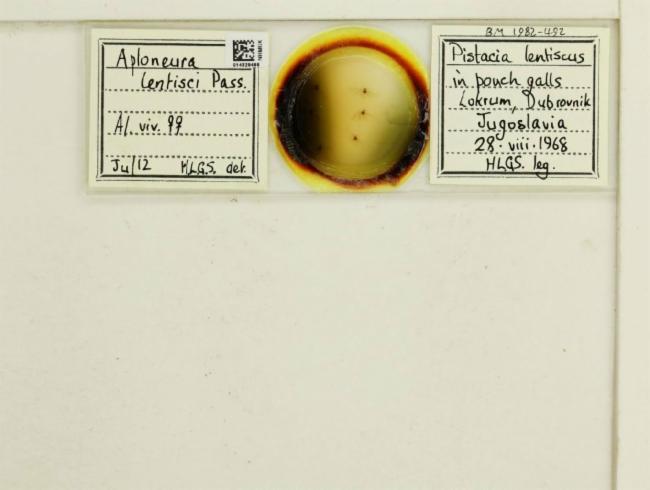 Aploneura
lentisci Pass.
Al. viv. ♀♀
Ju/12 H.L.G.S. det.
NHMUK
BM 1982-492
Pistacia lentiscus
in pouch galls
Lokrum, Dubrovnik
Jugoslavia
28.viii.1968
HLGS. leg.